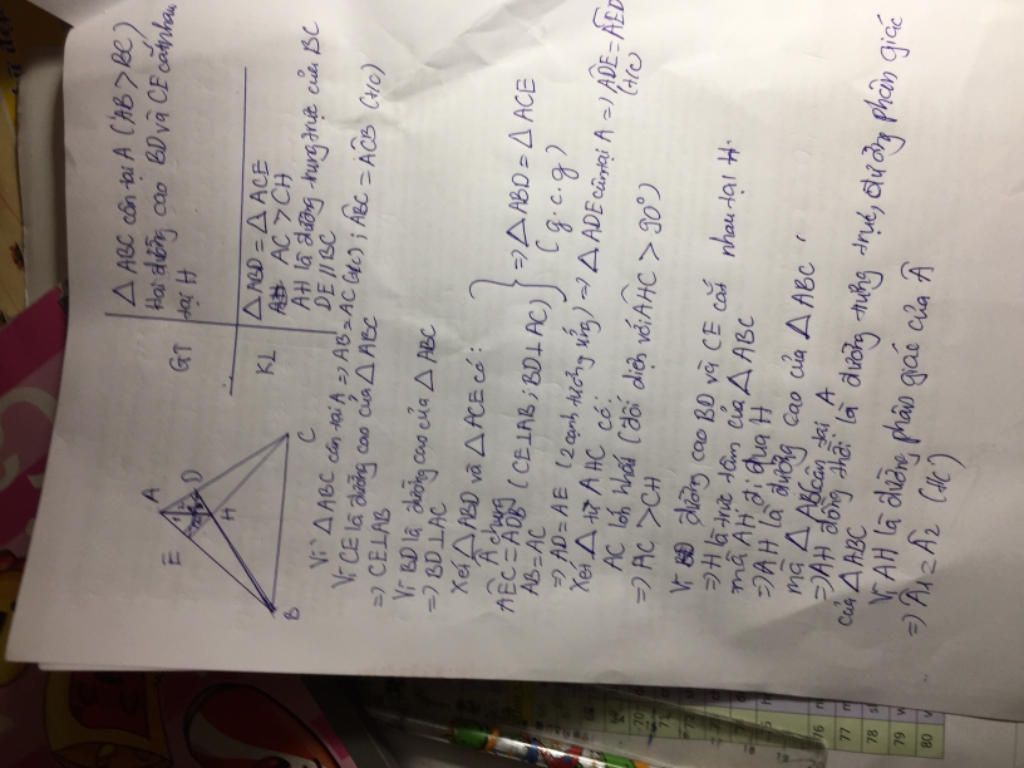 GT
△ ABC cân tại A (AB > BC)
Hai đường cao BD và CE cắt nhau
tại H
KL
△ ABD = △ ACE
AC > CH
AH là đường trung trực của BC
DE // BC
A
E
D
H
B
C
Vì △ ABC cân tại A => AB = AC (đ/c) ; ABC = ACB (t/c)
Vì CE là đường cao của △ ABC
=> CE⊥AB
Vì BD là đường cao của △ ABC
=> BD⊥AC
Xét △ ABD và △ ACE có:
Â chung
AEC = ADB (CE⊥AB ; BD⊥AC)
AB = AC
=> △ ABD = △ ACE
(g.c.g)
=> AD = AE (2 cạnh tương ứng) => △ ADE cân tại A => ADE = AED
(t/c)
Xét △ AHC có:
AC lớn nhất (đối diện với AHC > 90°)
=> AC > CH
Vì BD đường cao BD và CE cắt nhau tại H.
=> H là trực tâm của △ ABC
mà AH đi qua H
=> AH là đường cao của △ ABC
mà △ ABC cân tại A
=> AH đồng thời là đường trung trực, đường phân giác
của △ ABC
Vì AH là đường phân giác của Â
=> Â1 = Â2 (t/c)
76
77
78
79
80